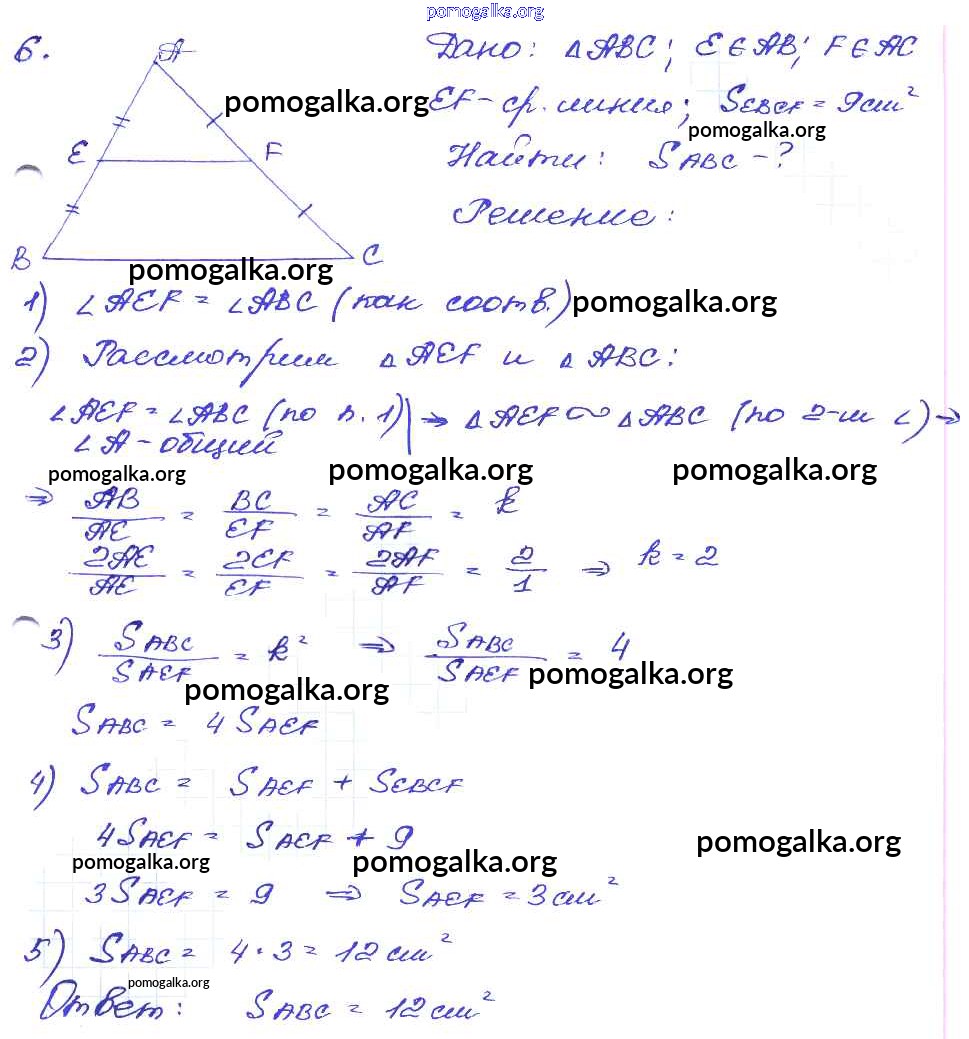 pomogalka.org
6.
A
Дано: △ABC; E∈AB; F∈AC
pomogalka.org
EF - ср. линия; SEBCF = 9 см²
pomogalka.org
E F
Найти: SABC - ?
Решение:
B C
pomogalka.org
1) ∠AEF = ∠ABC (как соотв.)
pomogalka.org
2) Рассмотрим △AEF и △ABC:
∠AEF = ∠ABC (по п. 1) | ⇒ △AEF ∾ △ABC (по 2-м ∠) ⇒
∠A - общий
pomogalka.org pomogalka.org pomogalka.org
⇒ AB/AE = BC/EF = AC/AF = k
2AE/AE = 2EF/EF = 2AF/AF = 2/1 ⇒ k = 2
3) SABC/SAEF = k² ⇒ SABC/SAEF = 4
pomogalka.org pomogalka.org
SABC = 4 SAEF
4) SABC = SAEF + SEBCF
4SAEF = SAEF + 9
pomogalka.org
pomogalka.org pomogalka.org
3SAEF = 9 ⇒ SAEF = 3 см²
5) SABC = 4 · 3 = 12 см²
pomogalka.org
Ответ: SABC = 12 см²